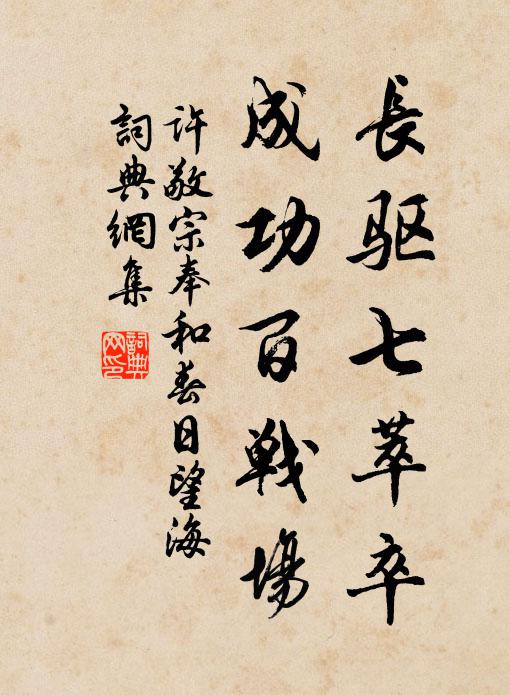 長驱七萃卒
成功百戦場
許敬宗奉和春日望海
詞典網集
詞典網印